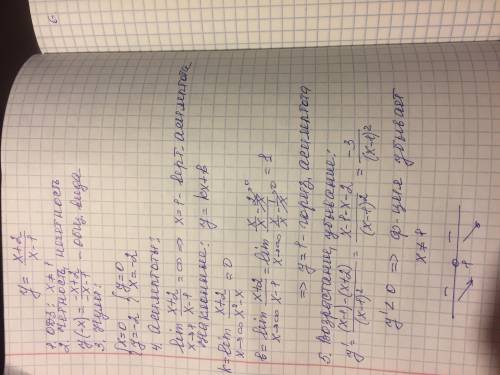 6
y = (x+2)/(x-1)
1. ОВЗ: x ≠ 1
2. Четность, нечетность
y(-x) = (-x+2)/(-x-1) - общ. вида
3. Нули:
{x=0 {y=0
{y=-2 {x=-2
4. Асимптоты:
lim x→1 (x+2)/(x-1) = ∞ ⇒ x=1 - верт. асимптота
Наклонные: y = kx+b
k = lim x→∞ (x+2)/(x²-x) = 0
b = lim x→∞ (x+2)/(x-1) = lim x→∞ (x/x + 2/x→0)/(x/x - 1/x→0) = 1
⇒ y=1 - гориз. асимптота
5. Возрастание, убывание:
y' = ((x-1)-(x+2))/(x-1)² = (x-1-x-2)/(x-1)² = -3/(x-1)²
y' < 0 ⇒ ф-ция убывает
x ≠ 1
- -
1